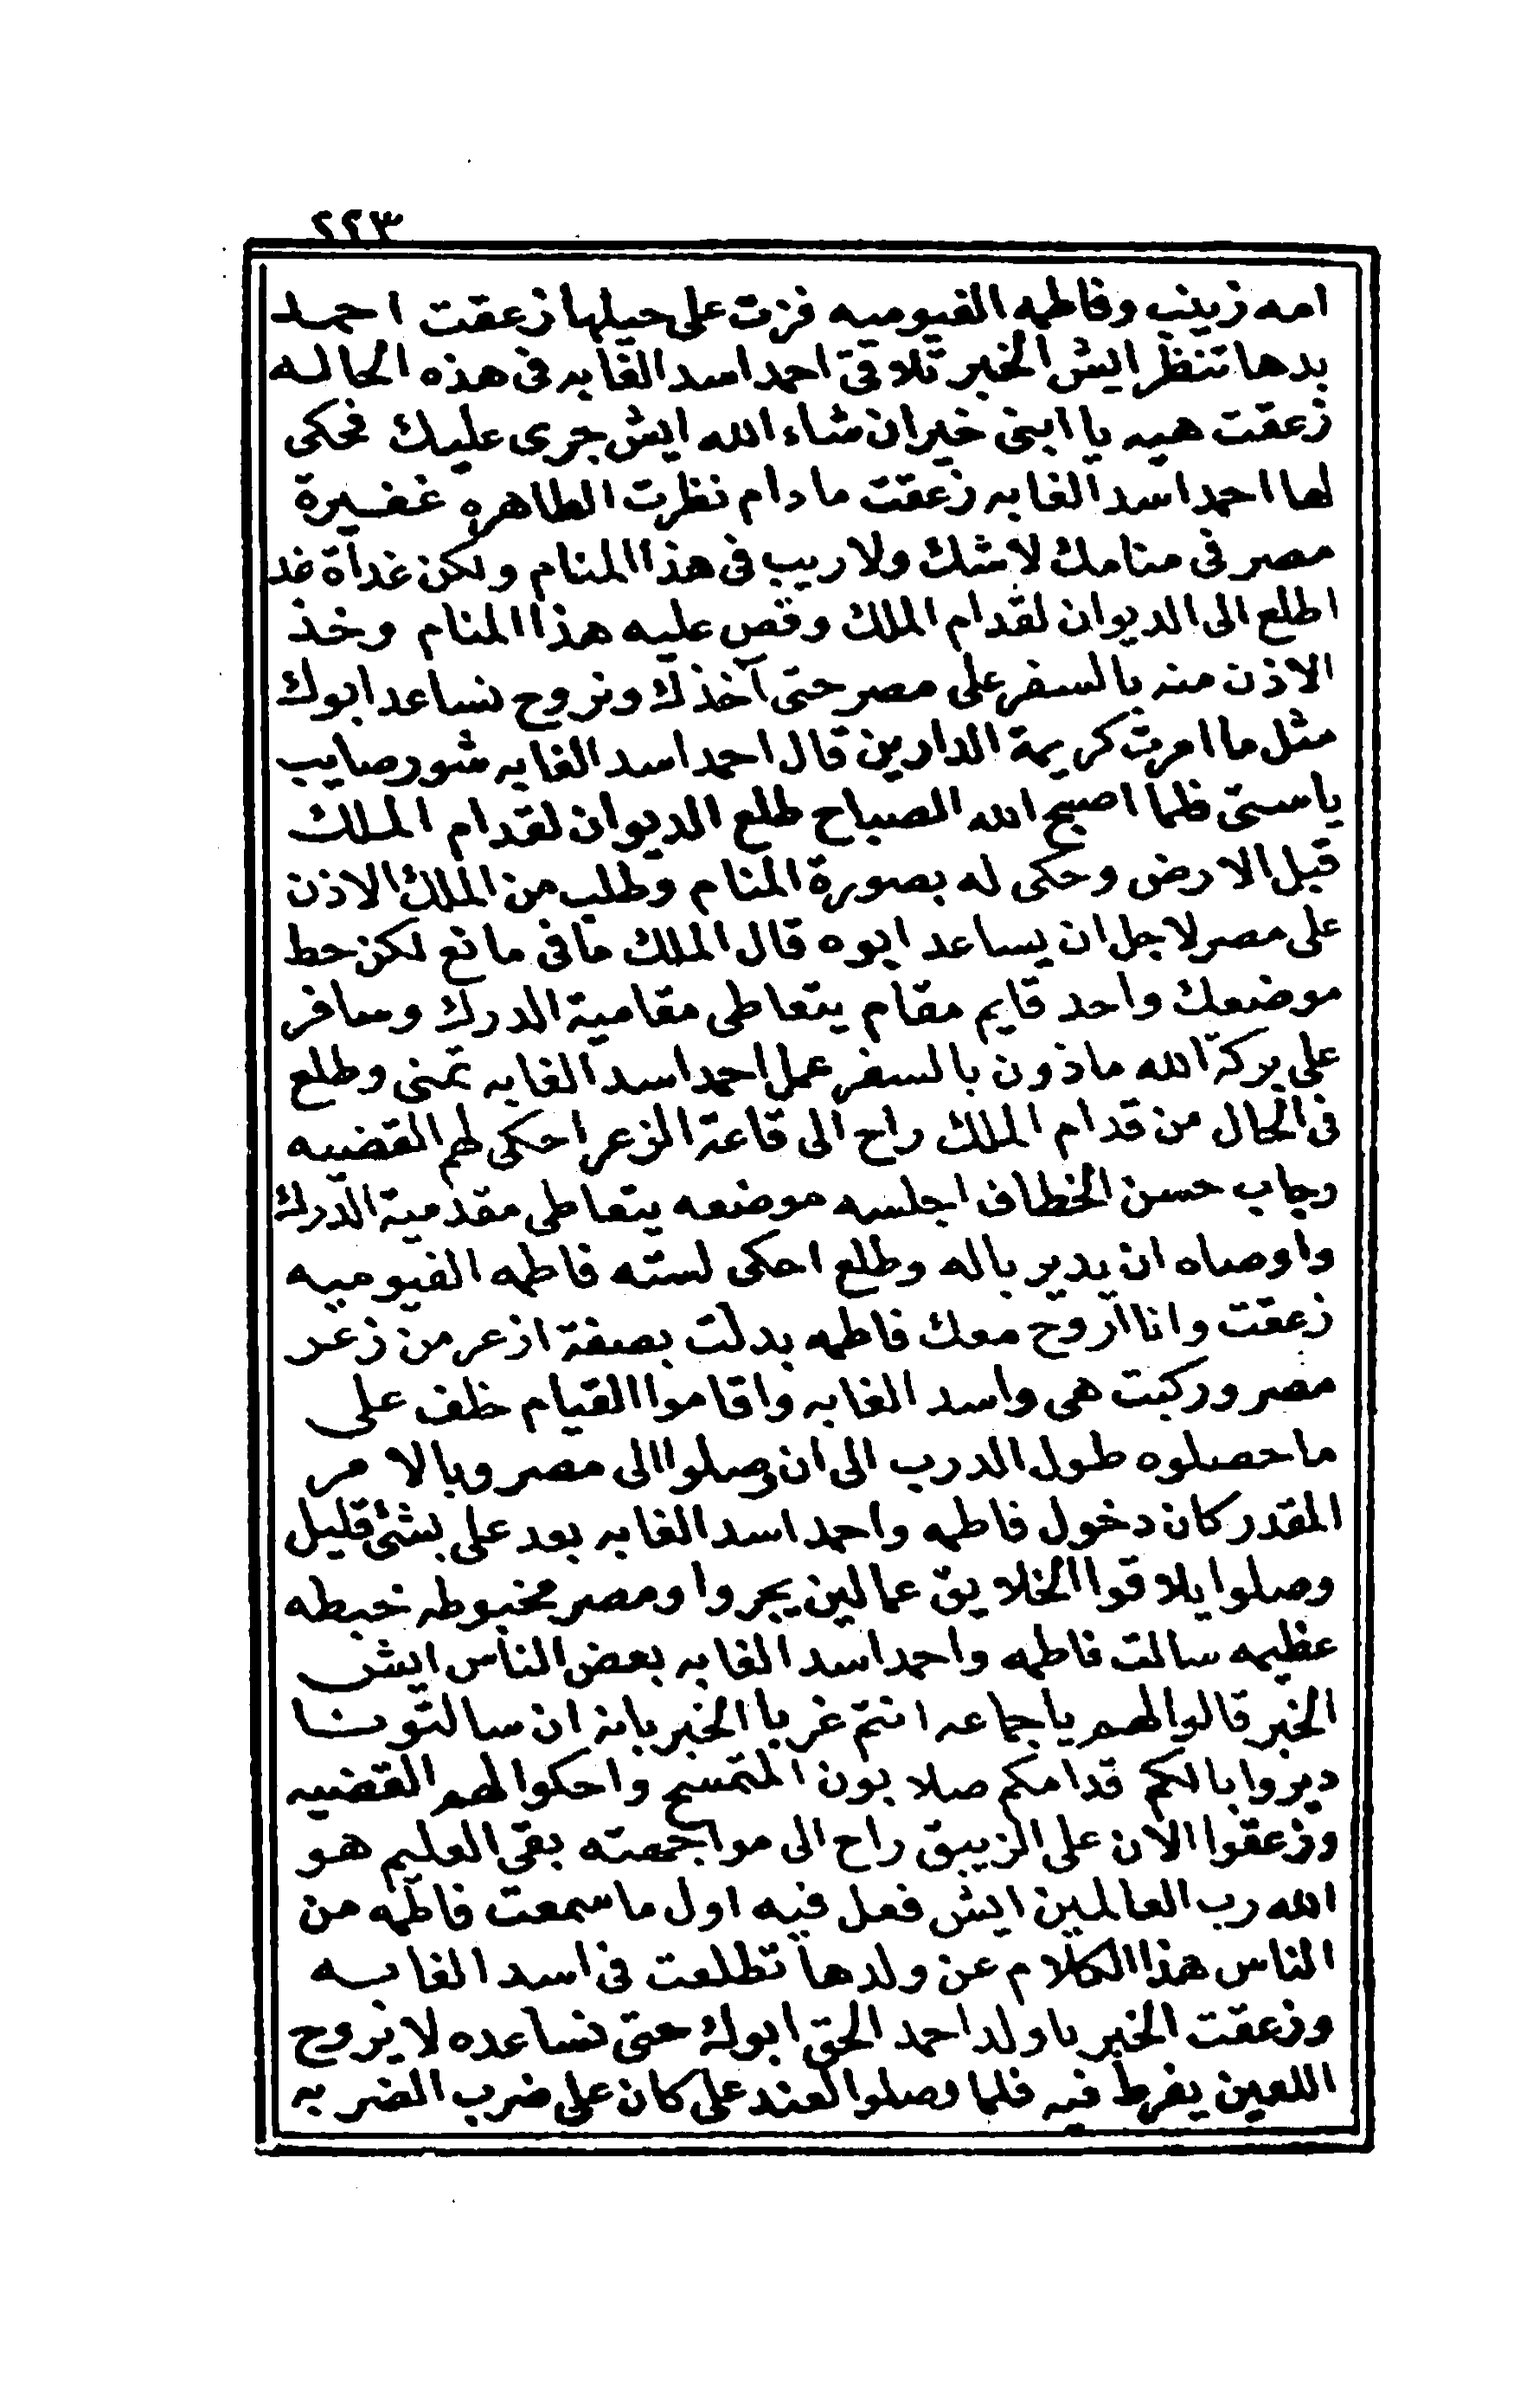 ٢٢٣
امه زينب وفاطمه الفيوميه فزت على حيلها زعقت احمد
بدها تنظر ايش الخبر تلاقى احمد اسد الغابه فى هذه الحاله
زعقت هيه يا ابنى خير ان شاء الله ايش جرى عليك فحكى
لها احمد اسد الغابه زعقت مادام نظرت الطاهره غفيرة
مصر فى منامك لا شك ولا ريب فى هذا المنام ولكن غداة غد
اطلع الى الديوان لقدام الملك وقص عليه هذا المنام وخذ
الاذن منه بالسفر على مصر حتى آخذك ونروح نساعد ابوك
مثل ما امرت كريمة الدارين قال احمد اسد الغابه شور صايب
ياستى فلما اصبح الله الصباح طلع الديوان لقدام الملك
قبل الارض وحكى له بصورة المنام وطلب من الملك الاذن
على مصر لاجل ان يساعد ابوه قال الملك مافى مانع لكن حط
موضعك واحد قايم مقام يتعاطى مقامية الدرك وسافر
على بركة الله ماذون بالسفر عمل احمد اسد الغابه تمنى وطلع
فى الحال من قدام الملك راح الى قاعة الزعر احكى لهم القضيه
وجاب حسن الخطاف اجلسه موضعه يتعاطى مقدمية الدرك
واوصاه ان يدير باله وطلع احكى لسته فاطمه الفيوميه
زعقت وانا اروح معك فاطمه بدلت بصفة ازعر من زعر
مصر وركبت هى واسد الغابه واقاموا القيام خلف على
ماحصلوه طول الدرب الى ان وصلوا الى مصر وبالامر
المقدر كان دخول فاطمه واحمد اسد الغابه بعد على بشئ قليل
وصلوا يلاقوا الخلايق عمالين يجروا ومصر مخبوطه خبطه
عظيمه سالت فاطمه واحمد اسد الغابه بعض الناس ايش
الخبر قالوا لهم ياجماعه انتم غربا الخبر بانه ان سالتونا
ديروا بالكم قدامكم صلابون المتمسح واحكوا لهم القضيه
وزعقوا الآن على الزيبق راح الى مواجهته بقى العليم هو
الله رب العالمين ايش فعل فيه اول ماسمعت فاطمه من
الناس هذا الكلام عن ولدها تطلعت فى اسد الغابه
وزعقت الخبر ياولد احمد الحق ابوك حتى نساعده لا يروح
اللعين يفرط فيه فلما وصلوا لعند على كان على ضرب الضربه